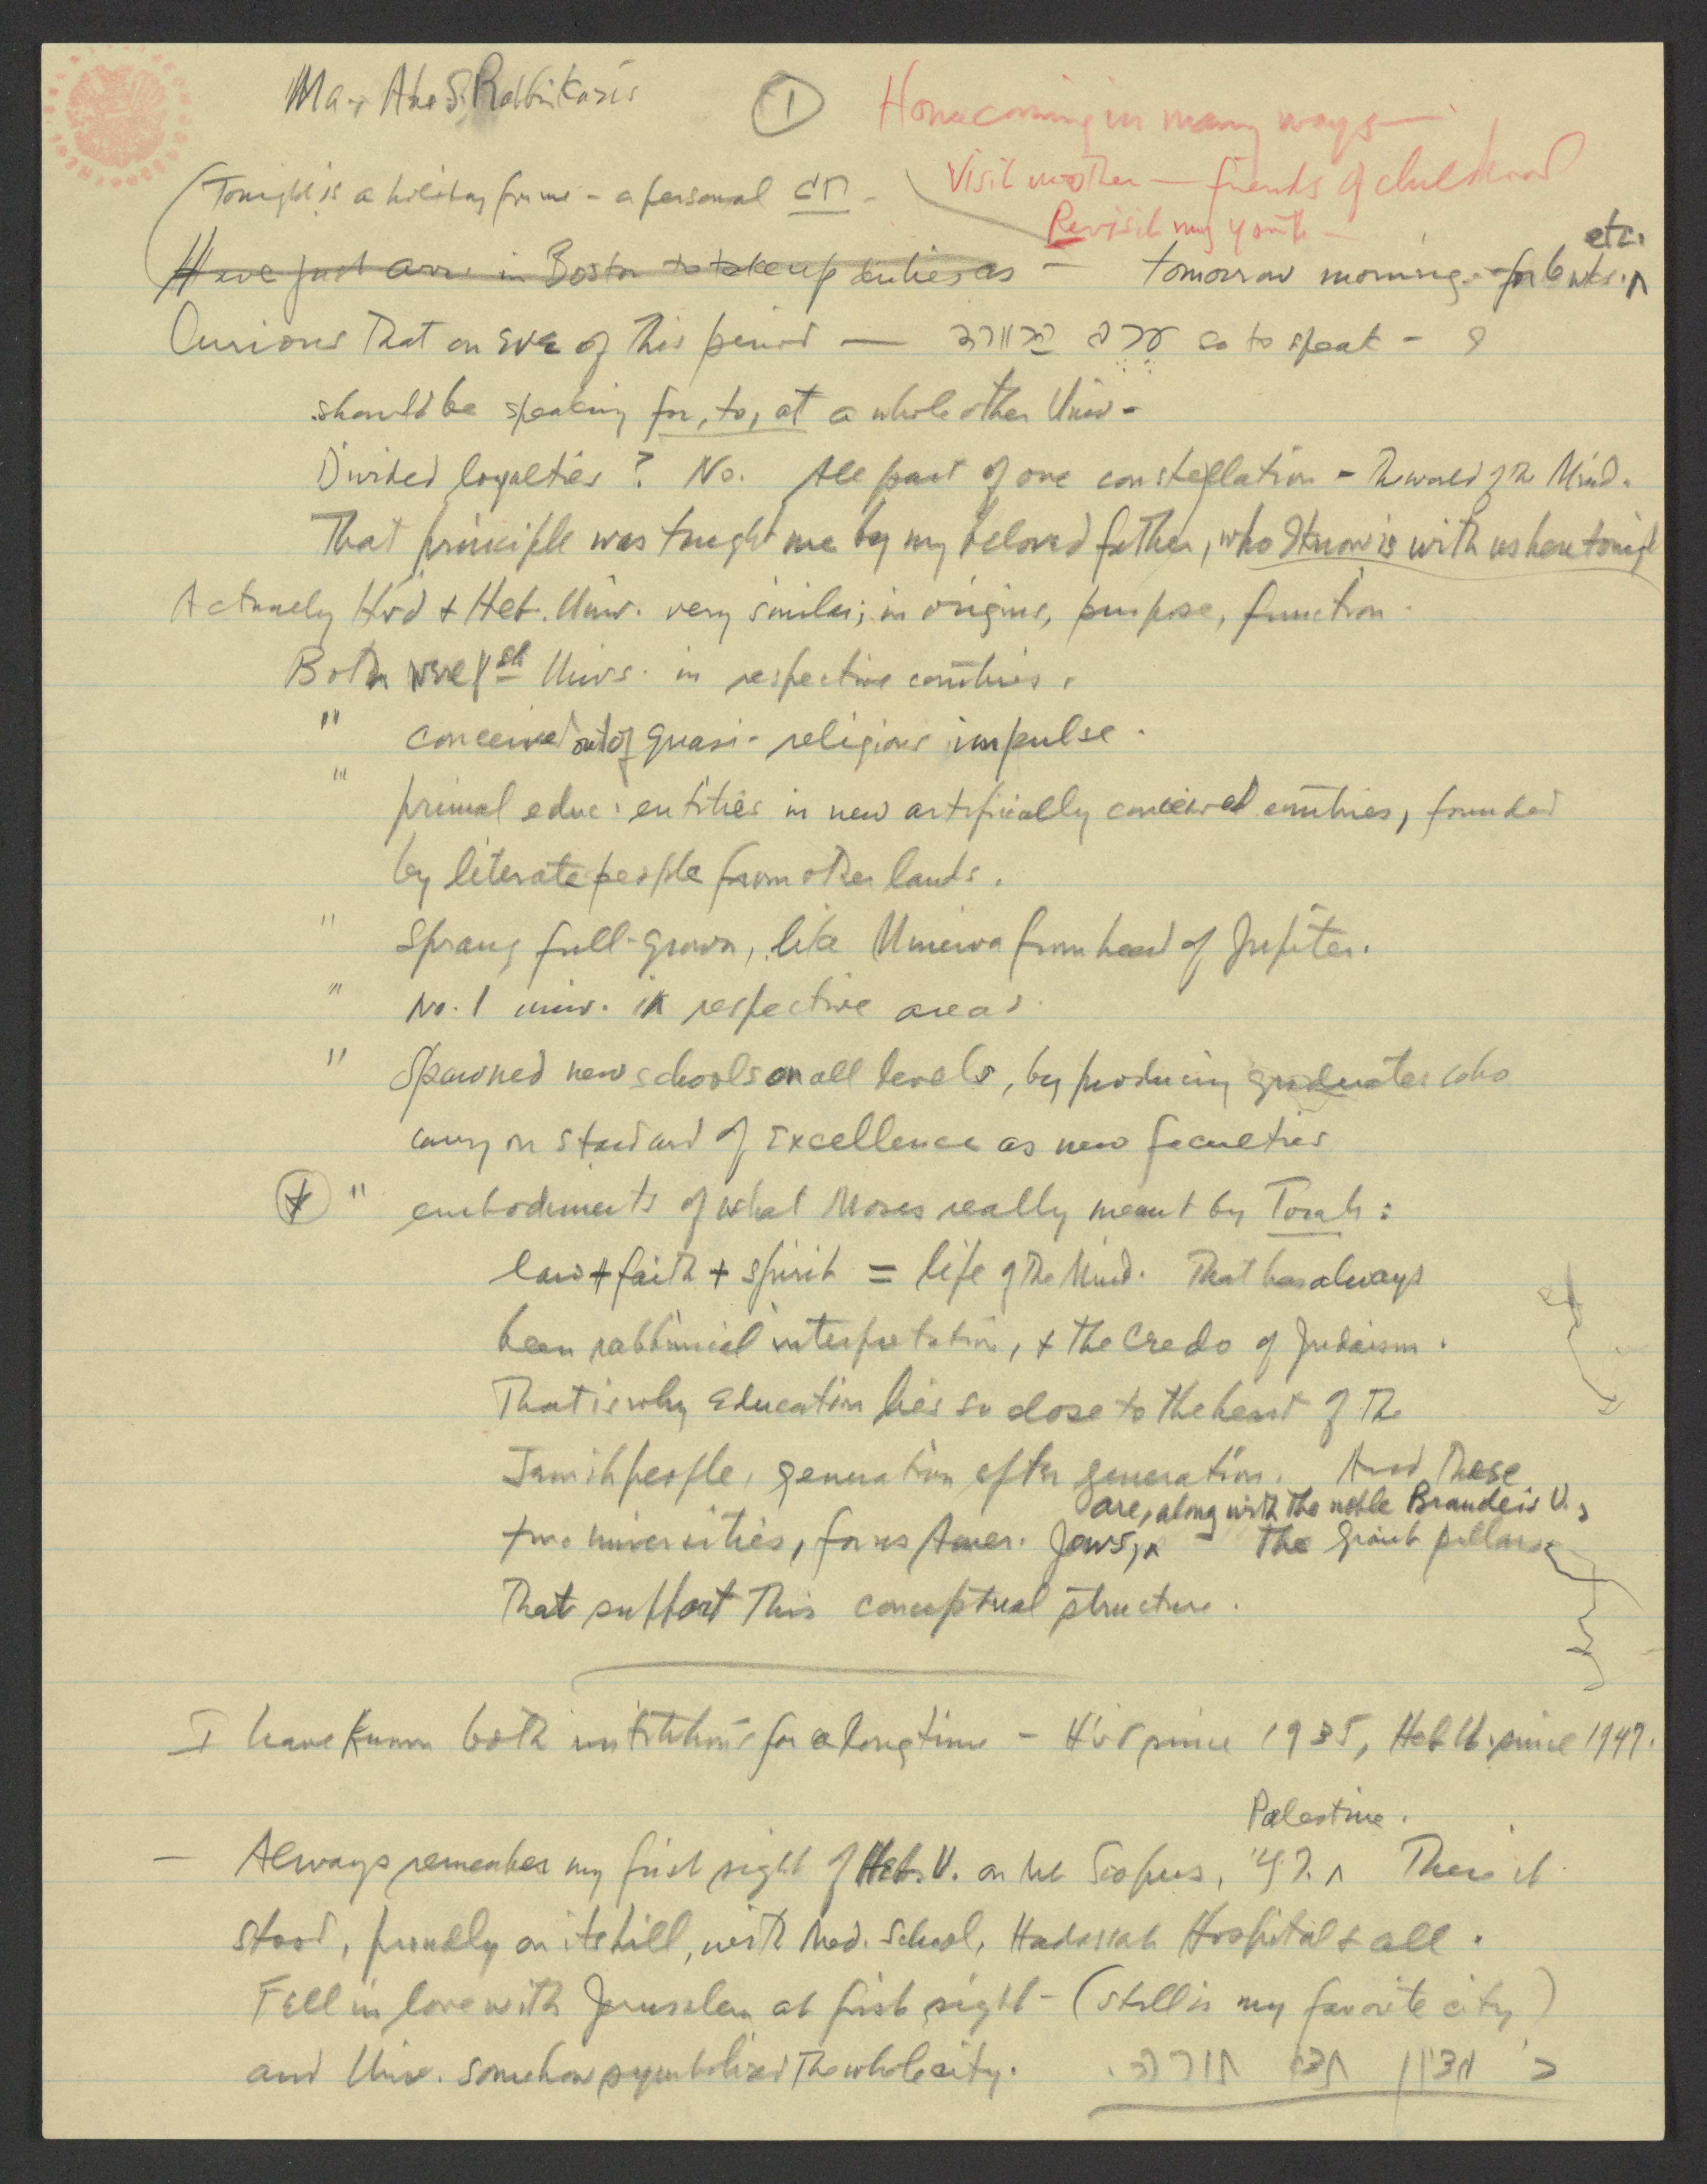 Ma, Abe S, Rabbi Kazis
①
Homecoming in many ways —
Visit mother — friends of childhood
Revisit my youth —
(Tonight is a holiday for me - a personal חג -
Have just arr. in Boston to take up duties as — tomorrow morning - for 6 wks. etc.
Curious that on eve of this period — ערב so to speak - I
should be speaking for, to, at a whole other Univ -
Divided loyalties? No. All part of one constellation - the world of the Mind.
That principle was taught me by my beloved father, who I know is with us here tonight
Actually Hvd + Heb. Univ. very similar; in origins, purpose, function.
Both were 1st Univs. in respective countries.
" conceived out of quasi-religious impulse.
" primal educ. entities in new artificially conceived countries, founded
by literate people from other lands.
" Sprang full-grown, like Minerva from head of Jupiter.
" No. 1 univ. in respective areas
" Spawned new schools on all levels, by producing graduates who
carry on standard of excellence as new faculties
+ " embodiments of what Moses really meant by Torah:
law + faith + spirit = life of the Mind. That has always
been rabbinical interpretation, + the Credo of Judaism.
That is why education lies so close to the heart of the
Jewish people, generation after generation. And these
two universities, for us Amer. Jews, are, along with the noble Brandeis U., the giant pillars
that support this conceptual structure.
I have known both institutions for a long time - Hvd since 1935, Heb U. since 1947.
— Always remember my first sight of Heb. U. on Mt Scopus, '47. Palestine. There it
stood, proudly on its hill, with Med. School, Hadassah Hospital + all.
Fell in love with Jerusalem at first sight - (still is my favorite city)
and Univ. somehow symbolized the whole city. כי מציון תצא תורה.